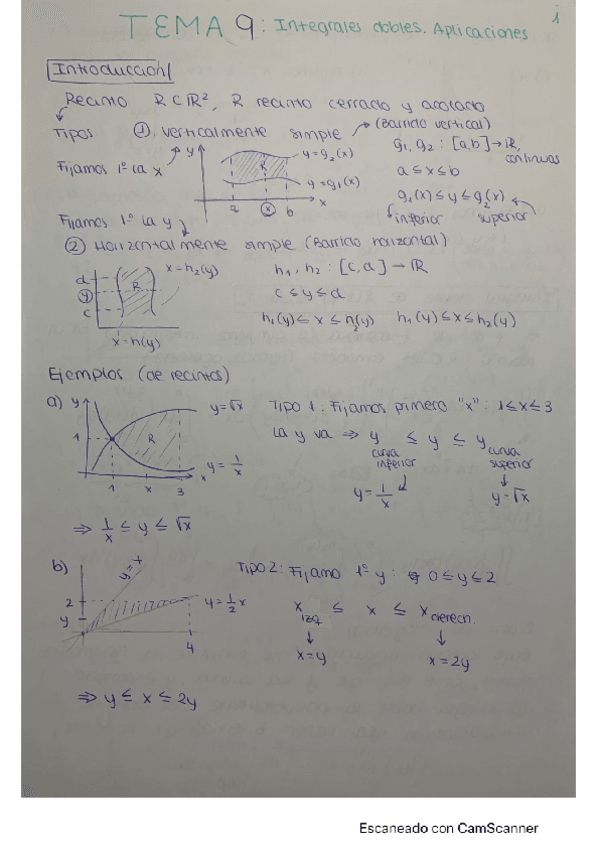 i
TEMA 9: Integrales dobles. Aplicaciones
Introducción
Recinto R ⊂ ℝ², R recinto cerrado y acotado
Tipos ① verticalmente simple → (Barrido vertical)
Fijamos 1º la x
y
y = g₂(x)
R
y = g₁(x)
a x b x
g₁, g₂ : [a,b] → ℝ, continuas
a ≤ x ≤ b
g₁(x) ≤ y ≤ g₂(x)
inferior superior
Fijamos 1º la y
② Horizontalmente simple (Barrido horizontal)
d
y
c
R
x = h₂(y)
x = h(y)
h₁, h₂ : [c,d] → ℝ
c ≤ y ≤ d
h₁(y) ≤ x ≤ h₂(y) h₁(y) ≤ x ≤ h₂(y)
Ejemplos (de recintos)
a) y
1
R
y = √x
y = 1/x
1 x 3 x
Tipo 1: Fijamos primero "x": 1 ≤ x ≤ 3
La y va ⇒ y curva inferior ≤ y ≤ y curva superior
y = 1/x y = √x
⇒ 1/x ≤ y ≤ √x
b)
2
y
y = x
y = 1/2 x
4
Tipo 2: Fijamo 1º y: 0 ≤ y ≤ 2
x izq ≤ x ≤ x derecn.
x = y x = 2y
⇒ y ≤ x ≤ 2y
Escaneado con CamScanner